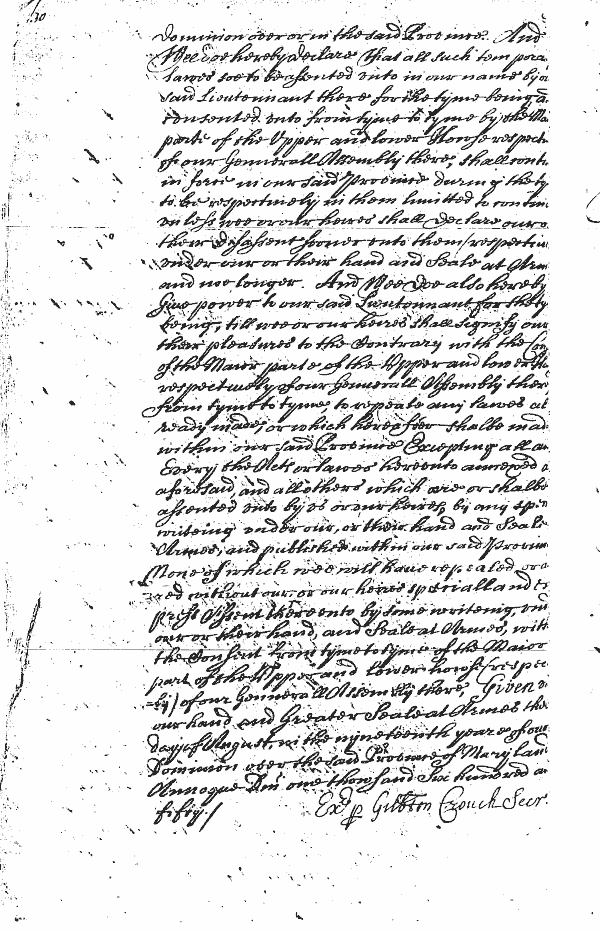 30
Dominion over or in the said Province. And
Wee doe hereby declare That all such tempora
lawes soe to be assented unto in our name by o
said Lieutennant there for the tyme being a
consented unto from tyme to tyme by the Ma
parte of the Upper and lower Howse respect
of our Generall Assembly there, shall cont
in force in our said Province during the ty
to be respectively in them limitted to contin
unless wee or our heires shall declare our o
their disassent sooner unto them (respectiv
under our or their hand and Seale at Arm
and noe longer. And Wee doe also hereby
Give power to our said Lieutennant for the ty
being, till wee or our heires shall signify our
their pleasures to the Contrary with the Con
of the Maior parte of the Upper and lower Ho
respectively of our Gennerall Assembly there
from tyme to tyme, to repeale any lawes al
ready made, or which hereafter shalbe mad
within our said Province Excepting all an
Every the Acts or lawes hereunto annexed a
aforesaid, and all others which are or shalbe
assented unto by us or our heires, by any spe
writeing under our, or their hand and Seale
Armes, and published within our said Provin
None of which wee will have repealed or a
red without our or our heires speciall and ex
press Assent thereunto by some writeing, und
our or their hand, and Seale at Armes, with
the Consent from tyme to tyme of the Maior
part of the Upper and lower howse (respec
ly) of our Gennerall Assembly there. Given u
our hand and Greater Seale at Armes the
day of August, in the nyneteenth yeare of our
Dominion over the said Province of Maryland
Annoque Dni one thowsand Six hundred an
fifty./
Exd p Gilbton Crouch Secr.